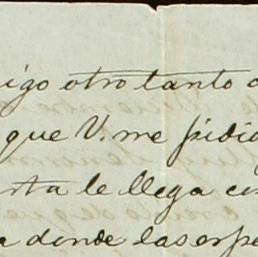 igo otro tanto
que V. me pidio
rta le llega co
a donde las espe